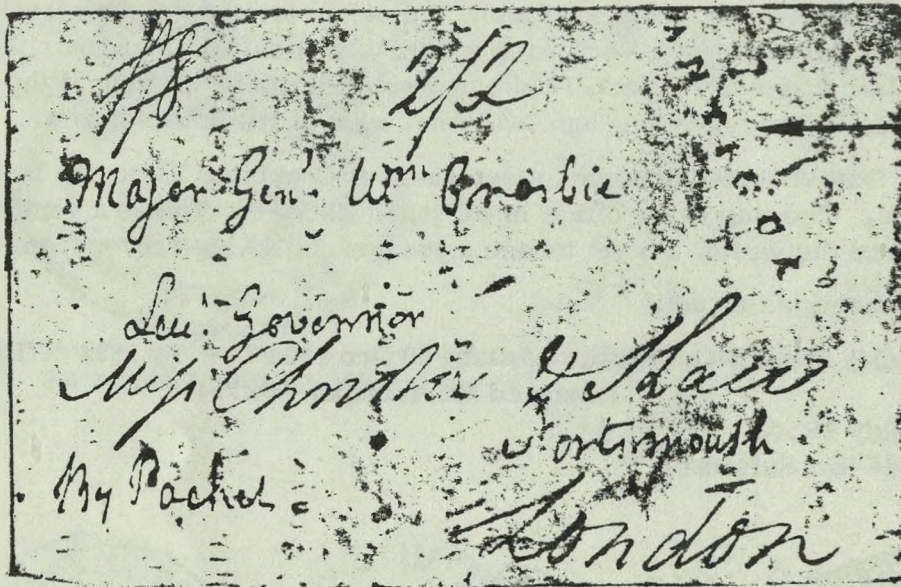 1/8 2/2
Major Gen! Wm Crosbie
Lieu! Governor
Messrs Christie & Shaw
Portsmouth
By Packet
London